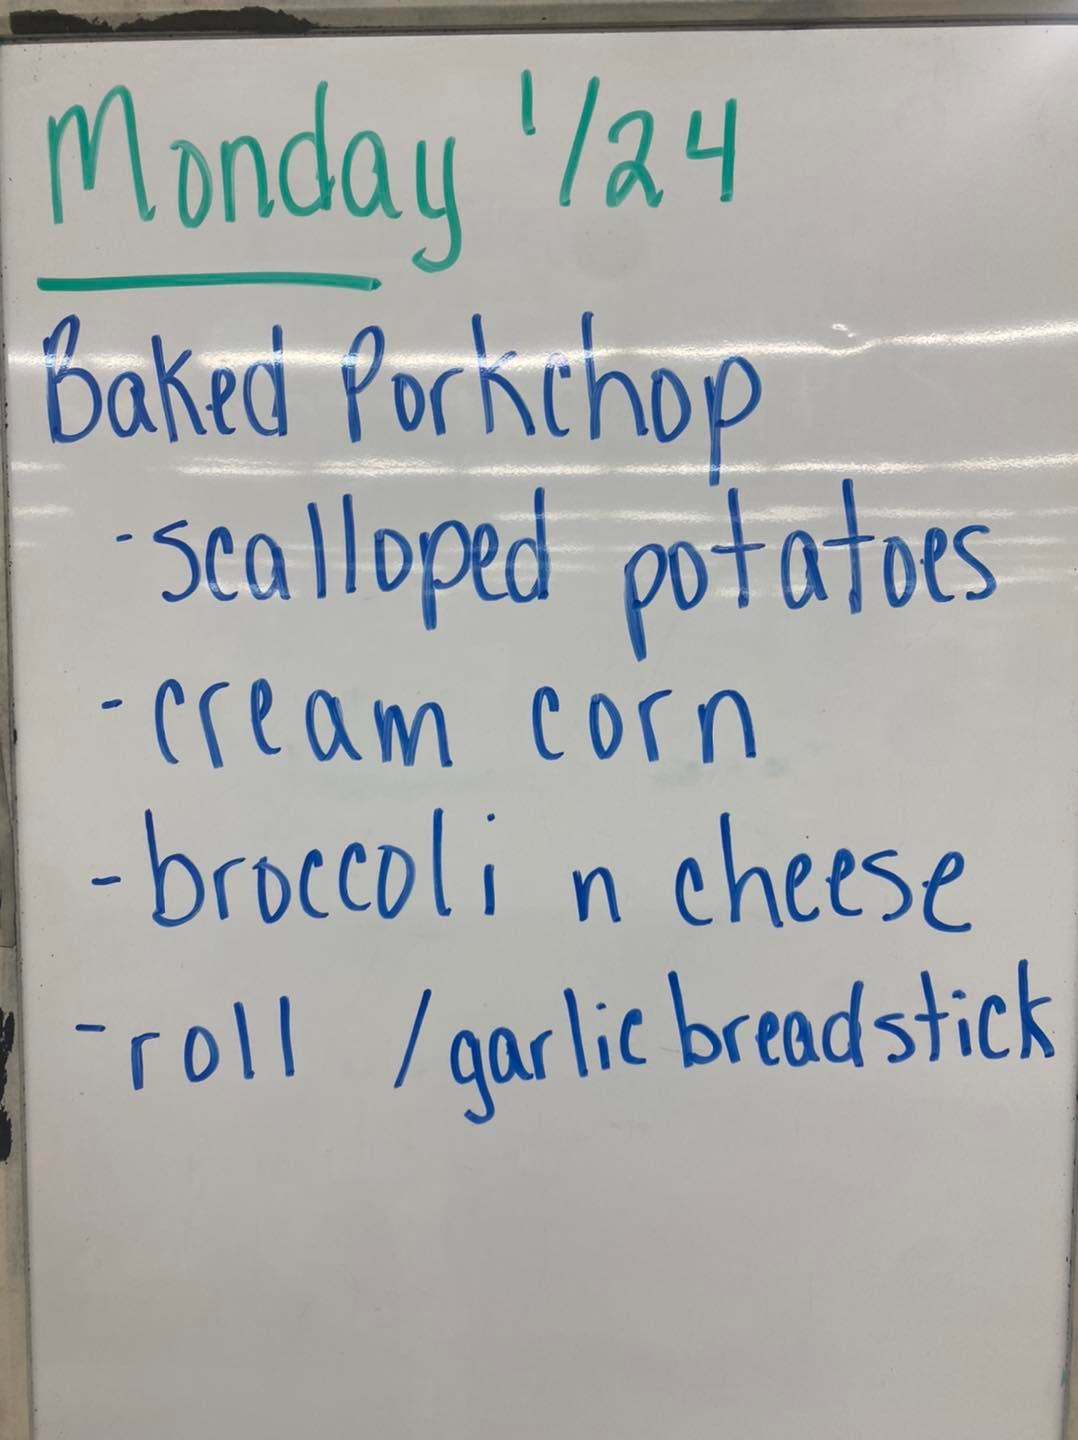 Monday 1/24
Baked Porkchop
-scalloped potatoes
-cream corn
-broccoli n cheese
-roll /garlic breadstick